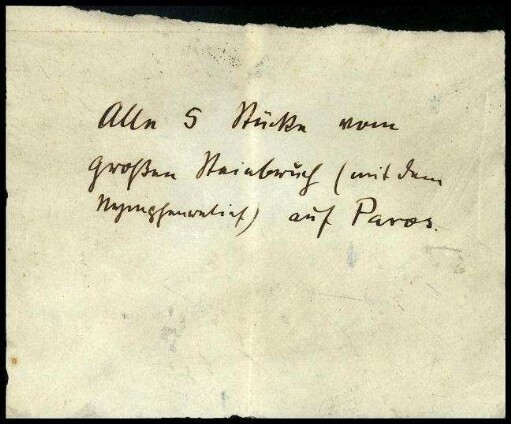 Alle 5 Stücke vom
großen Steinbruch (mit dem
Nymphenrelief) auf Paros.